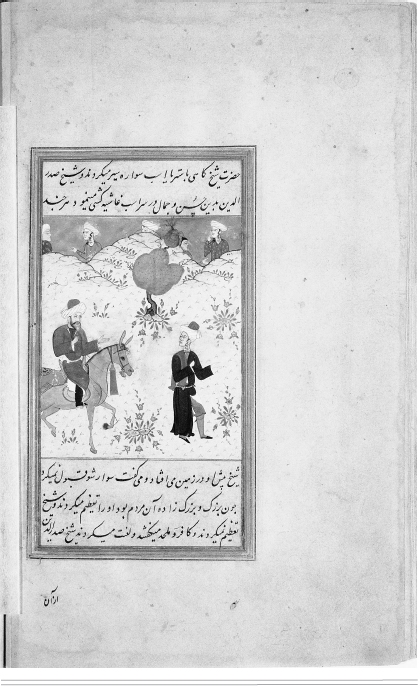 حضرت شیخ گاهی با سواره سیر میکردند و شیخ صدر
الدین بدین حسن و جمال در سراب غاشیه کشی مینمود و هرچند
شیخ پیش او در زمین می افتاد و می گفت سوار شو قبول نمیکرد
چون بزرگ و بزرگ زاده آن مردم بود او را تعظیم میکردند و شیخ
تعظیم نمیکردند و کافر و ملحد میگفتند و لعنت میکردند شیخ صدرالدین
از آن